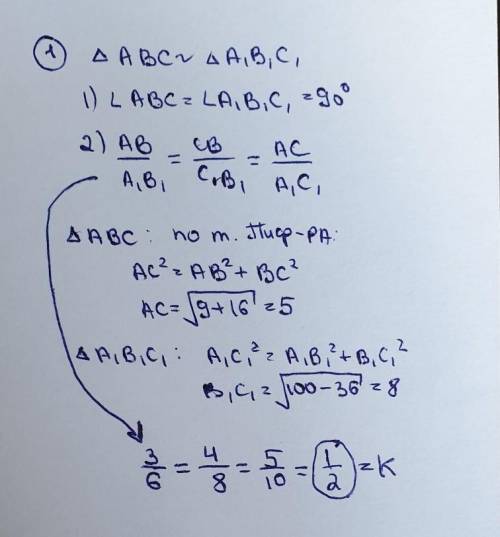 1 △ ABC ~ △ A₁B₁C₁
1) ∠ ABC = ∠A₁B₁C₁ = 90°
2) AB/A₁B₁ = CB/C₁B₁ = AC/A₁C₁
△ ABC: по т. Пиф-РА:
AC² = AB² + BC²
AC = √(9+16) = 5
△ A₁B₁C₁: A₁C₁² = A₁B₁² + B₁C₁²
B₁C₁ = √(100-36) = 8
3/6 = 4/8 = 5/10 = 1/2 = K